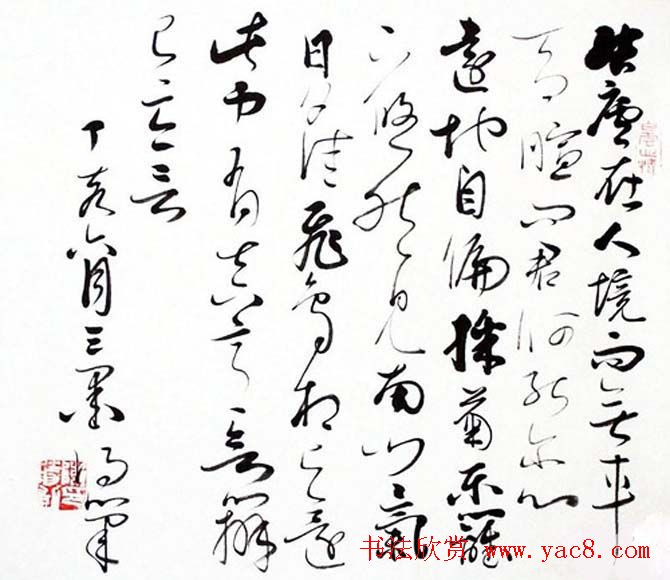 結廬在人境而無車
馬喧問君何能爾心
遠地自偏採菊東籬
下悠然見南山山氣
日夕佳飛鳥相與還
此中有真意欲辨
已忘言
丁亥六月三墨
书法欣赏 www.yac8.com